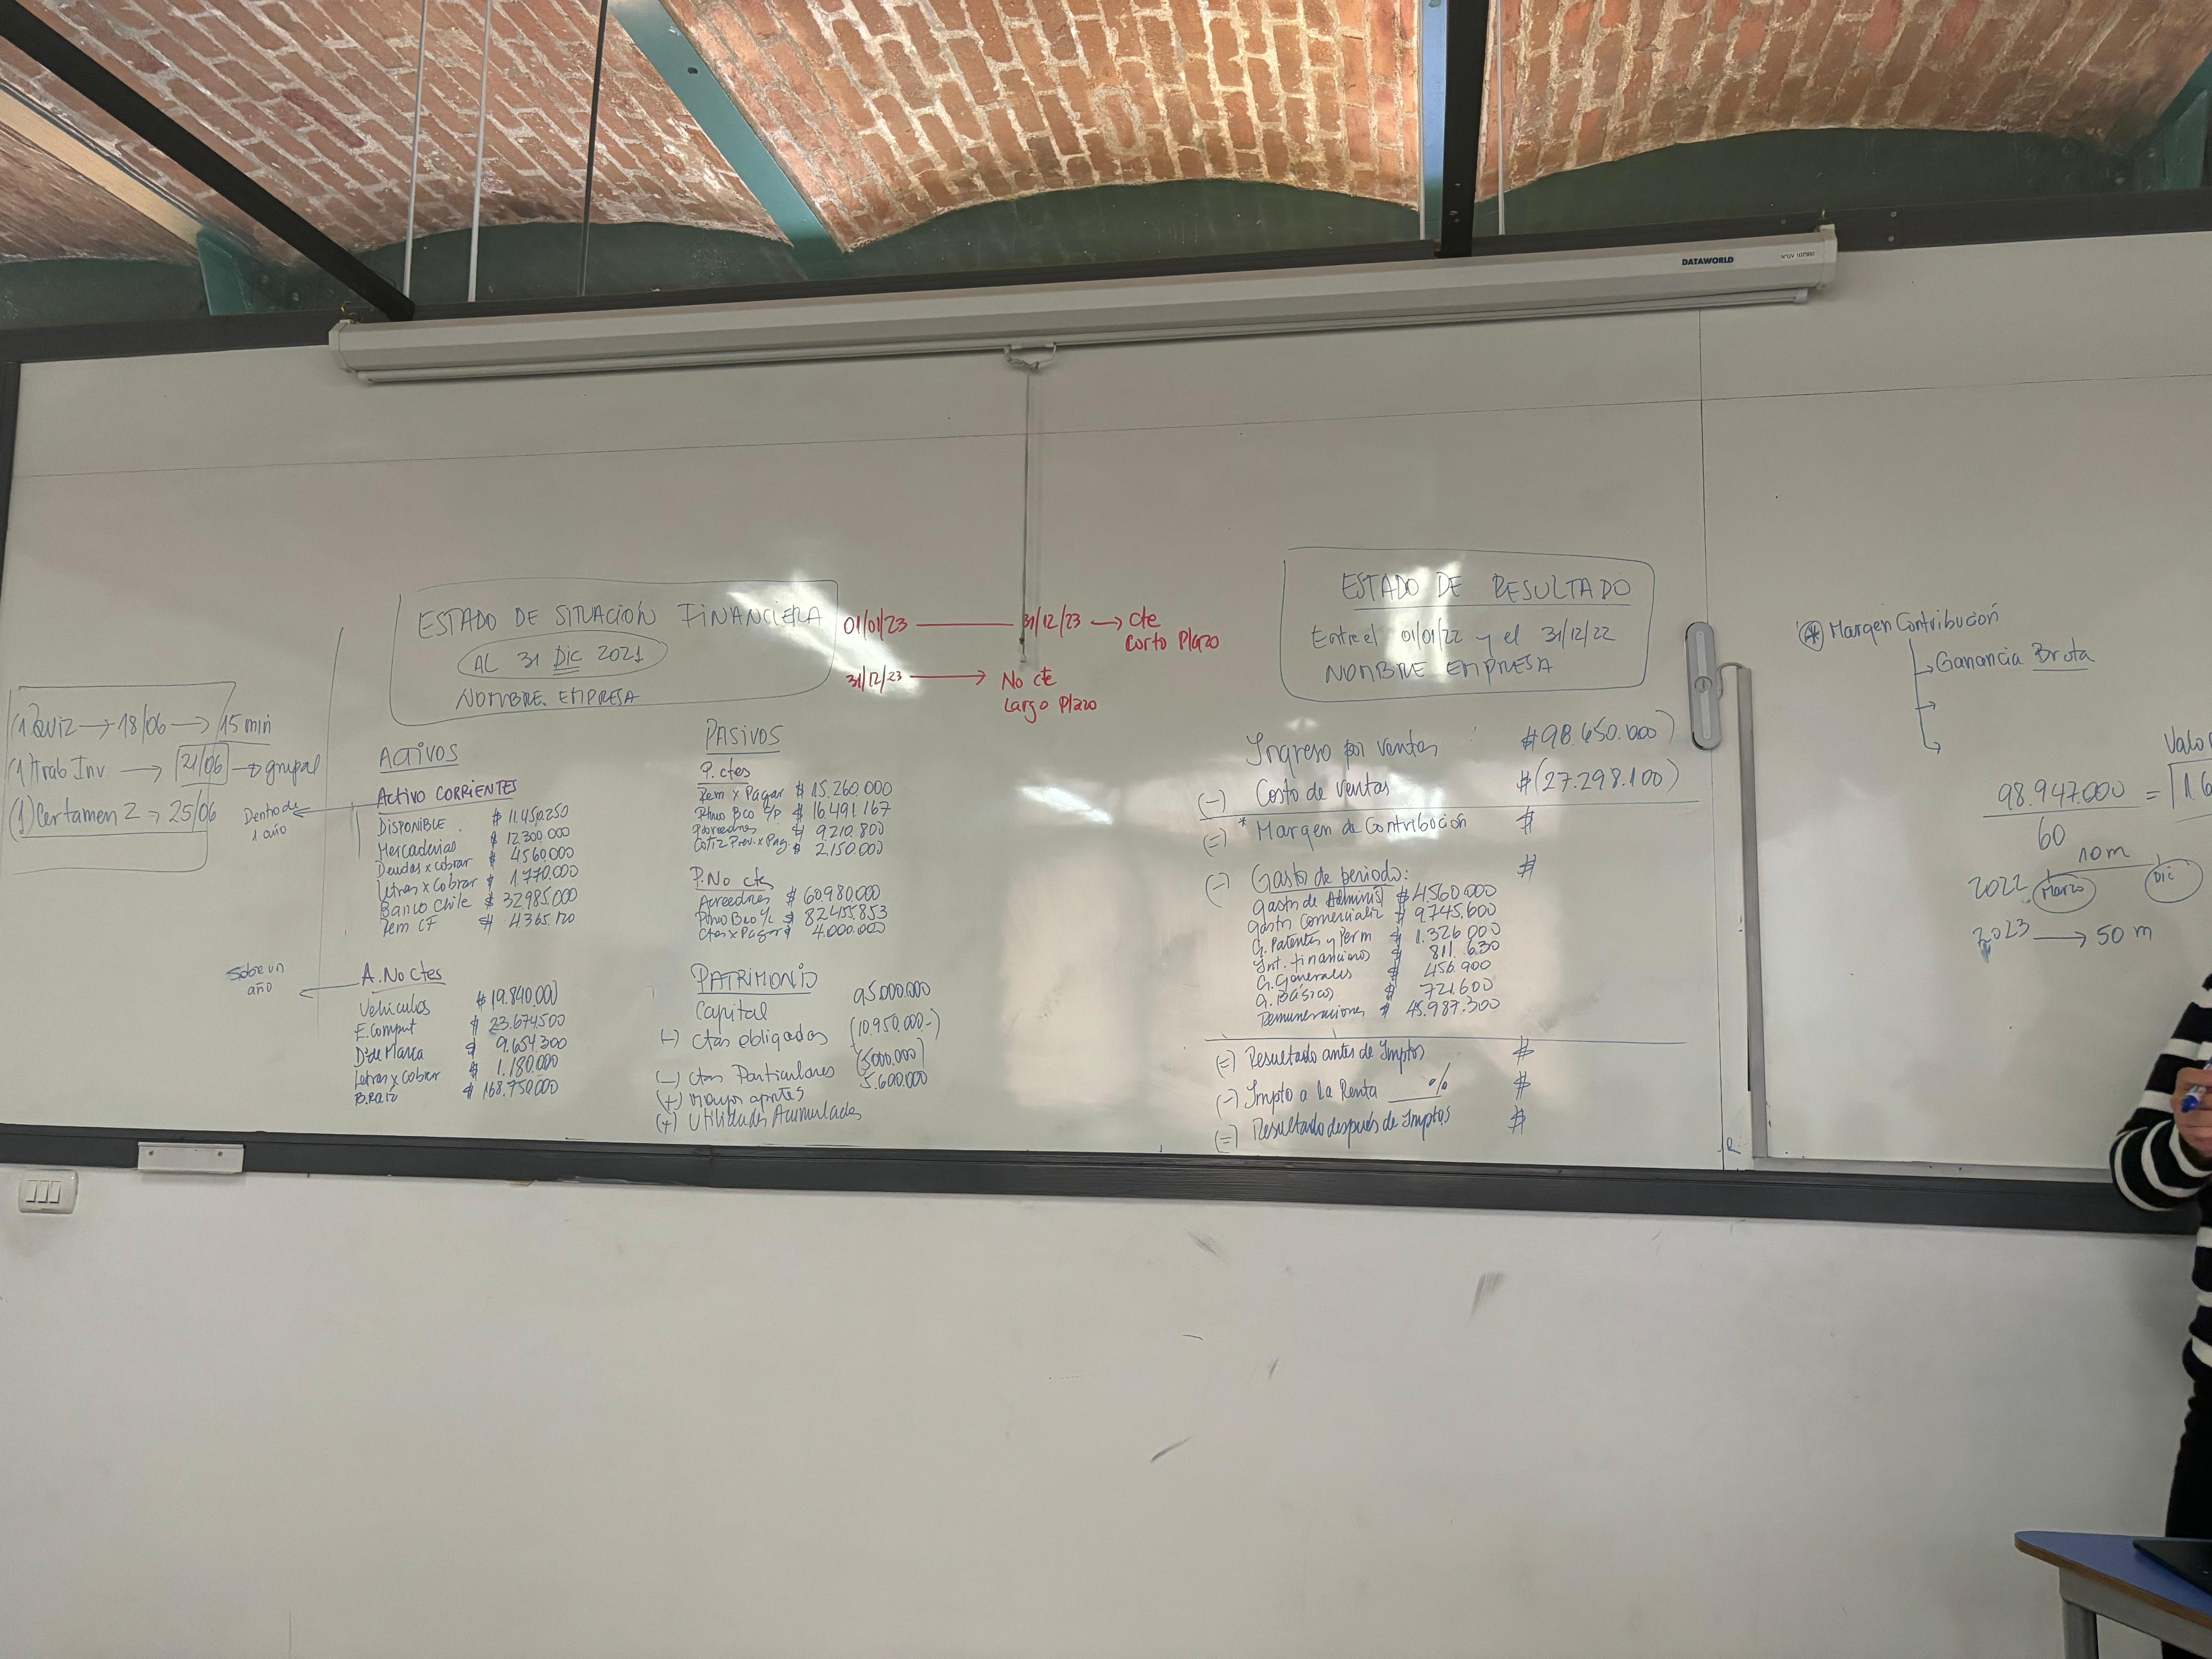 DATAWORLD
(1) Quiz → 18/06 → 15 min
(1) Trab Inv → 21/06 → grupal
(1) Certamen 2 → 25/06
Dentro de
1 año
Sobre un
año
ESTADO DE SITUACIÓN FINANCIERA
AL 31 Dic 2021
NOMBRE EMPRESA
01/01/23 — 31/12/23 → Cte
Corto Plazo
31/12/23 → No cte
Largo Plazo
ACTIVOS
ACTIVO CORRIENTES
DISPONIBLE $ 11.450.250
Mercaderias $ 12.300.000
Deudas x cobrar $ 4.560.000
Letras x Cobrar $ 1.770.000
Banco Chile $ 32.985.000
Rem CF $ 4.365.120
A. No Ctes
Vehiculos $ 19.840.000
E. Comput $ 23.674.500
D° de Marca $ 9.654.300
Letras x Cobrar $ 1.180.000
B. Raiz $ 168.750.000
PASIVOS
P. ctes
Rem x Pagar $ 15.260.000
Ptmo Bco C/P $ 16.491.167
Proveedores $ 9.210.800
Cotiz Prev. x Pag. $ 2.150.000
P. No ctes
Acreedores $ 60.980.000
Ptmo Bco L/ $ 82.455.853
Ctas x Pagar $ 4.000.000
PATRIMONIO
Capital 95.000.000
(-) Ctas obligadas (10.950.000-)
(-) Ctas Particulares (5000.000)
(+) mayor aportes 5.600.000
(+) Utilidades Acumuladas
ESTADO DE RESULTADO
Entre el 01/01/22 y el 31/12/22
NOMBRE EMPRESA
Ingreso por ventas : $ 98.650.000)
(-) Costo de ventas $ (27.298.100)
(=) * Margen de Contribución $
(-) Gasto de periodo: $
gastos de Administ $ 4.560.000
gastos Comercializ $ 9.745.600
G. Patentes y Perm $ 1.326.000
Int. financieros $ 811.630
G. Generales $ 456.900
G. Básicos $ 721.600
Remuneraciones $ 45.987.300
(=) Resultado antes de Imptos $
(-) Impto a la Renta ___% $
(=) Resultado después de Imptos $
* Margen Contribución
→ Ganancia Bruta
→
→
98.947.000 =
60
10 m
2022 Marzo Dic
2023 → 50 m